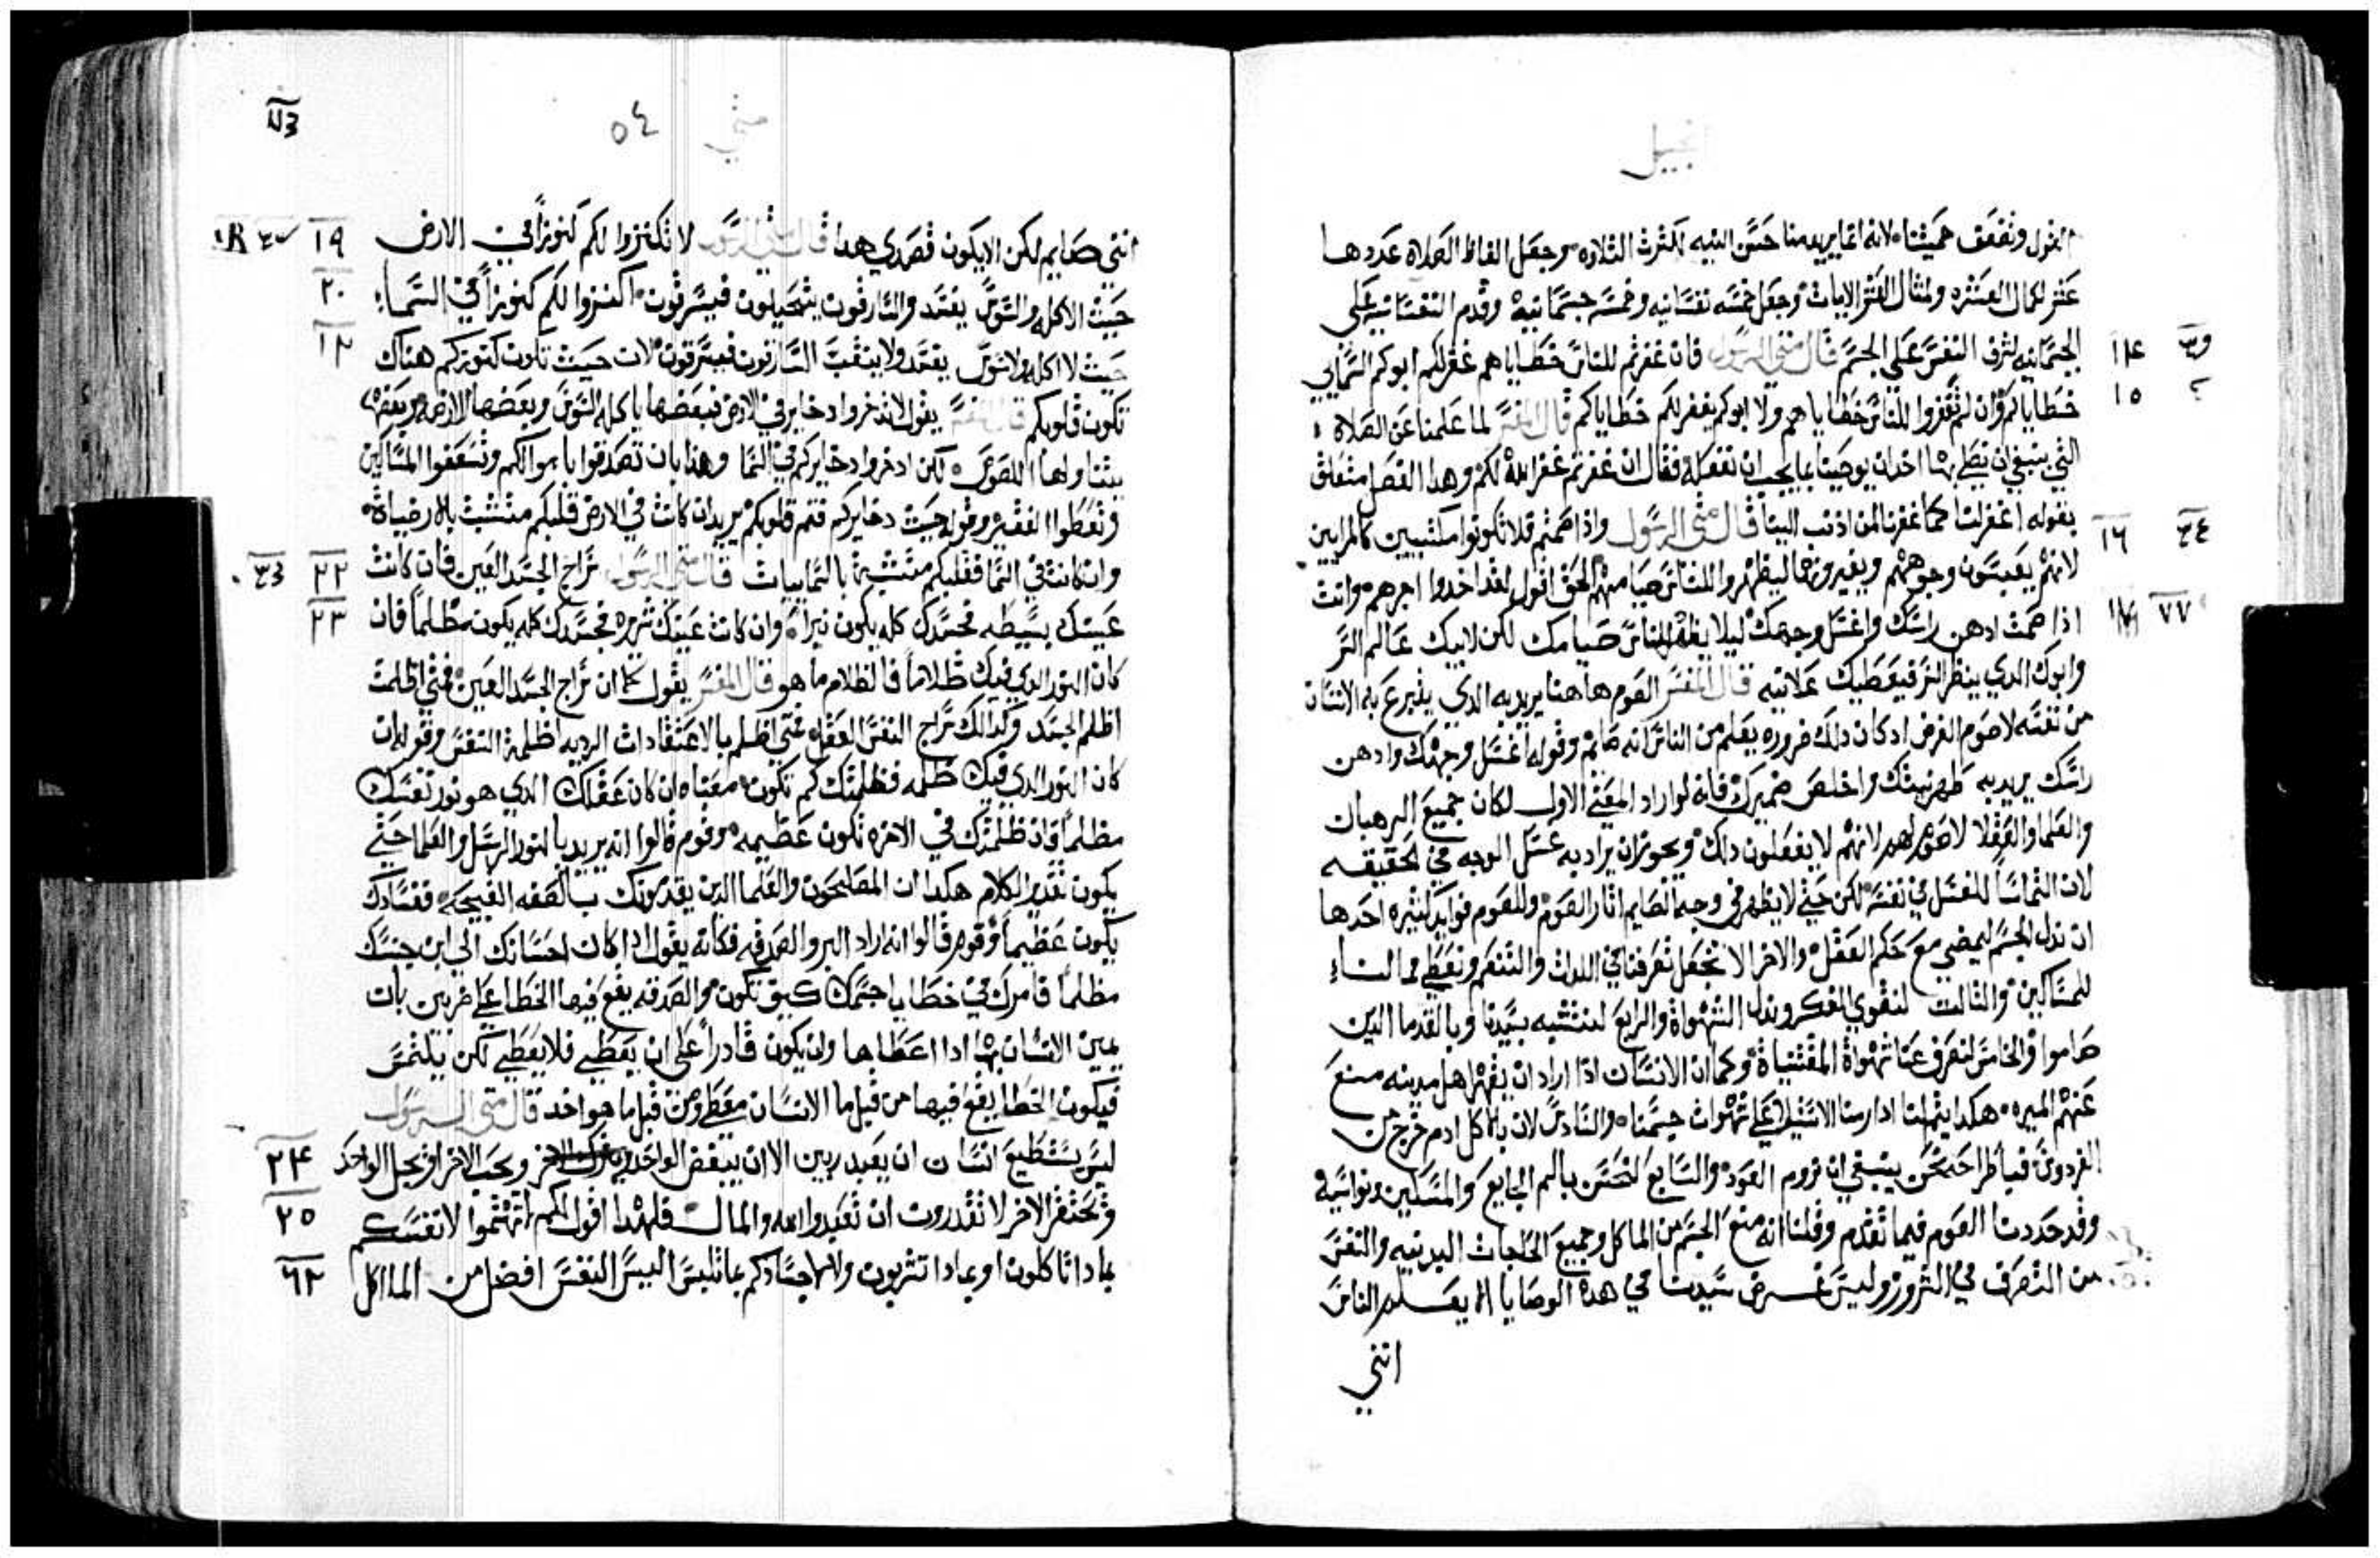 انجيل
القول وتقفقف همتنا لانه انما يريد منا حسن النيه لكثرت التلاوه وجعل الفاظ الصلاة عددها
عشر لكمال العشره ولمثال العشر الايات وجعل خمسه نفسانيه وخمسه جسمانيه وقدم النفسانيه على
الجسمانيه لشرف النفس على الجسم قال متى الرسول فان غفرتم للناس خطاياهم غفر لكم ابوكم السمايي
١٤
خطاياكم وان لم تغفروا للناس خطاياهم ولا ابوكم يغفر لكم خطاياكم قال المفسر لما علمنا عن الصلاة
١٥
التي ينبغي ان نصلي بها اخد ان يوصينا بما يجب ان نفعله فقال ان غفرتم غفر الله لكم وهدا الفصل متعلق
بقوله اغفر لنا كما غفرنا لمن اذنب الينا قال متى الرسول واذا صمتم فلا تكونوا مكتيبين كالمرايين
١٦
لانهم يعبسون وجوههم ويغيرونها ليظهروا للناس صيامهم الحق اقول لقد اخدوا اجرهم وانت
اذا صمت ادهن راسك واغسل وجهك ليلا يظهر للناس صيامك لكن لابيك عالم السر
وابوك الدي ينظر السر فيعطيك علانيه قال المفسر الصوم هاهنا يريد به الدي يتبرع به الانسان
من نفسه لا صوم الفرض اد كان دلك ضروره يعلم من الناس انه صايم وقوله اغسل وجهك وادهن
راسك يريد به طهر نيتك واخلص ضميرك فانه لو اراد المعنى الاول لكان جميع الرهبان
والعلما والعقلا لا صوم لهم لانهم لا يفعلون دلك ويجوز ان يراد به غسل الوجه في الحقيقه
لان التماسا للغسل في نفسه لكن حتى لا يظهر في وجه الصايم اثار الصوم وللصوم فوايد كثيره احدها
ان ندل الجسم ليمضي مع حكم العقل والاخر الا نجعل تصرفنا في اللدات والتنعم ونعطي مما لنا
للمساكين والثالت لتقوي الفكر وتدل الشهواة والرابع لنتشبه بسيدنا وبالقدما الدين
صاموا والخامس لنصرف عنا شهواة المقتنياة وكما ان الانسان اذا اراد ان يقهر اهل مدينه منع
عنهم الميره هكدا يتم لنا ادا رمنا الاستيلا على شهوات جسمنا والسادس لان بالاكل ادم خرج من
الفردوس فباطراحه نحن ينبغي ان نروم العوده والسابع لنحس بالم الجايع والمسكين ونواسيه
وقد حددنا الصوم فيما تقدم وقلنا انه منع الجسم من الماكل وجميع الحاجات البدنيه والنفس
من التصرف في الشرور وليس غرض سيدنا في هده الوصايا الا يعلم الناس
انني
متى ٥٤
انني صايم لكن الا يكون قصدي هدا قال متى الرسول لا تكنزوا لكم كنوزا في الارض
١٩
حيت الاكله والسوس يفسد والسارقون يتحيلون فيسرقون اكنزوا لكم كنوزا في السما
٢٠
حيت لا اكله ولا سوس يفسد ولا ينقب السارقون فيسرقون لان حيت تكون كنوزكم هناك
٢١
تكون قلوبكم قال المفسر يقول لا تدخروا دخايركم في الارض فبعضها ياكله السوس وبعضها الارضه وبعضها
يتناولها اللصوص لكن ادخروا دخايركم في السما وهذا بان تصدقوا باموالكم وتسعفوا المساكين
وتعطوا الفقير وقوله حيت دخايركم فتم قلوبكم يريد ان كانت في الارض قلبكم متشبت بالارضياة
وان كانت في السما فقلبكم متشبت بالسماييات قال متى الرسول سراج الجسد العين فان كانت
٢٢
عينك بسيطه فجسدك كله يكون نيرا وان كانت عينك شريره فجسدك كله يكون مظلما فان
٢٣
كان النور الدي فيك ظلاما فالظلام ما هو قال المفسر يقول كما ان سراج الجسد العين فمتى اظلمت
اظلم الجسد وكدالك سراج النفس العقل فمتى اظلم بالاعتقادات الرديه اظلمة النفس وقوله ان
كان النور الدي فيك ظلمه فظلمتك كم تكون معناه ان كان عقلك الدي هو نور نفسك
مظلما فان ظلمتك في الاخره تكون عظيمه وقوم قالوا انه يريد بالنور الرسل والعلما حتى
يكون تقدير الكلام هكدا ان المصلحون والعلما الدين يقدمونك بالصفه القبيحه ففسادك
يكون عظيما وقوم قالوا انه اراد البر والصدقه فكانه يقول ادا كان احسانك الى ابن جنسك
مظلما فامرك في خطايا جسمك كيف تكون والصدقه يقع فيها الخطا على ضربين بان
يمين الانسان بها ادا اعطاها وان يكون قادرا على ان يعطي فلا يعطي لكن يلتمس
فيكون الخطا يقع فيها من قبل ما الانسان معطي ومن قبل ما هو اخد قال متى الرسول
ليس يستطيع انسان ان يعبد ربين الا ان يبغض الواحد ويحب الاخر او يجل الواحد
٢٤
ويحتقر الاخر لا تقدرون ان تعبدوا الله والمال فلهدا اقول لكم لا تهتموا لانفسكم
٢٥
بمادا تاكلون او بمادا تشربون ولا لاجسادكم بما تلبس اليس النفس افضل من الماكل
٢٦